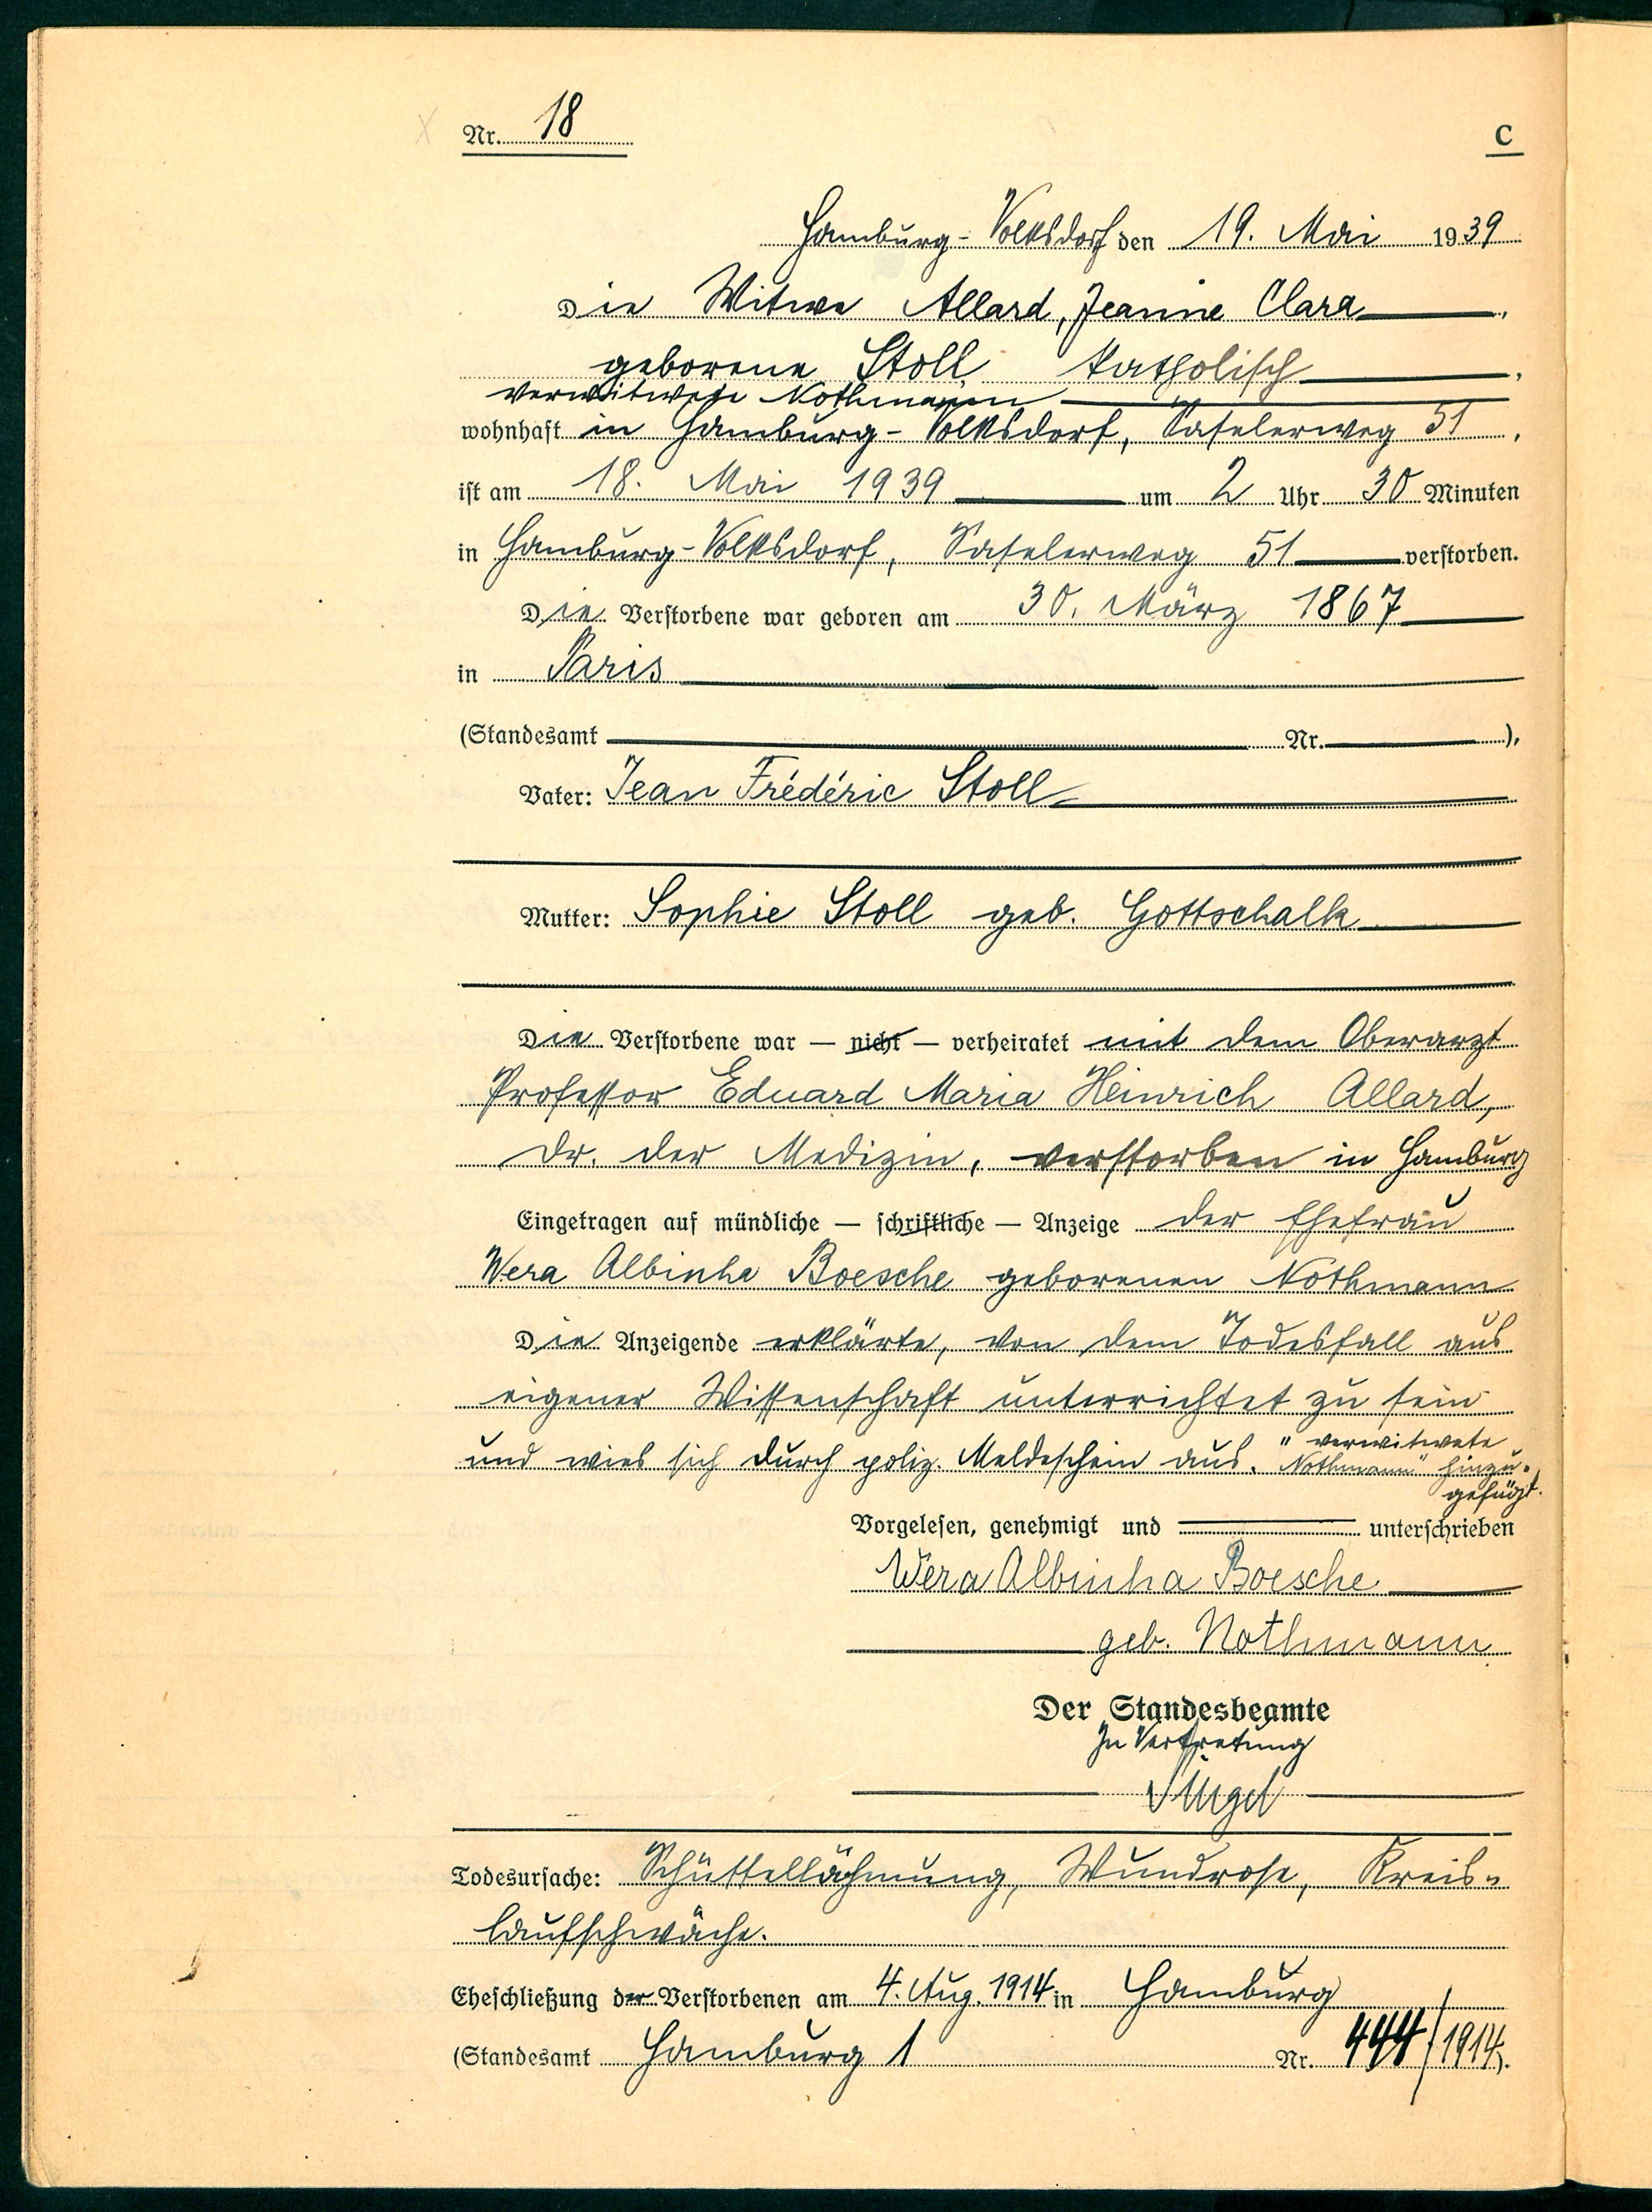 Nr. 18
C
Hamburg-Volksdorf den 19. Mai 1939
Die Witwe Allard, Jeanne Clara
geborene Stoll, katholisch,
verwitwete Nothmann
wohnhaft in Hamburg-Volksdorf, Saselerweg 51,
ist am 18. Mai 1939 um 2 Uhr 30 Minuten
in Hamburg-Volksdorf, Saselerweg 51 verstorben.
Die Verstorbene war geboren am 30. März 1867
in Paris
(Standesamt Nr. ),
Vater: Jean Frédéric Stoll
Mutter: Sophie Stoll geb. Gottschalk
Die Verstorbene war — nicht — verheiratet mit dem Oberarzt
Professor Eduard Maria Heinrich Allard,
Dr. der Medizin, verstorben in Hamburg
Eingetragen auf mündliche — schriftliche — Anzeige der Ehefrau
Wera Albinha Boesche geborenen Nothmann
Die Anzeigende erklärte, von dem Todesfall aus
eigener Wissenschaft unterrichtet zu sein
und wies sich durch poliz. Meldeschein aus. "verwitwete
Nothmann" hinzu-
gefügt.
Vorgelesen, genehmigt und unterschrieben
Wera Albinha Boesche
geb. Nothmann
Der Standesbeamte
In Vertretung
Todesursache: Schüttellähmung, Wundrose, Kreis-
laufschwäche.
Eheschließung der Verstorbenen am 4. Aug. 1914 in Hamburg
(Standesamt Hamburg 1 Nr. 444/1914).